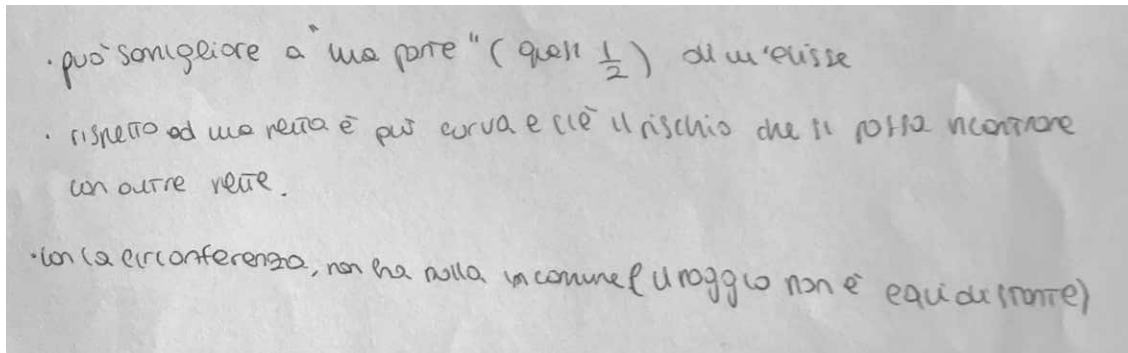 · può somigliare a "una parte" (quasi 1/2) di un'elisse
· rispetto ad una retta è più curva e c'è il rischio che si possa incontrare
con altre rette.
· Con la circonferenza, non ha nulla in comune (il raggio non è equidistante)